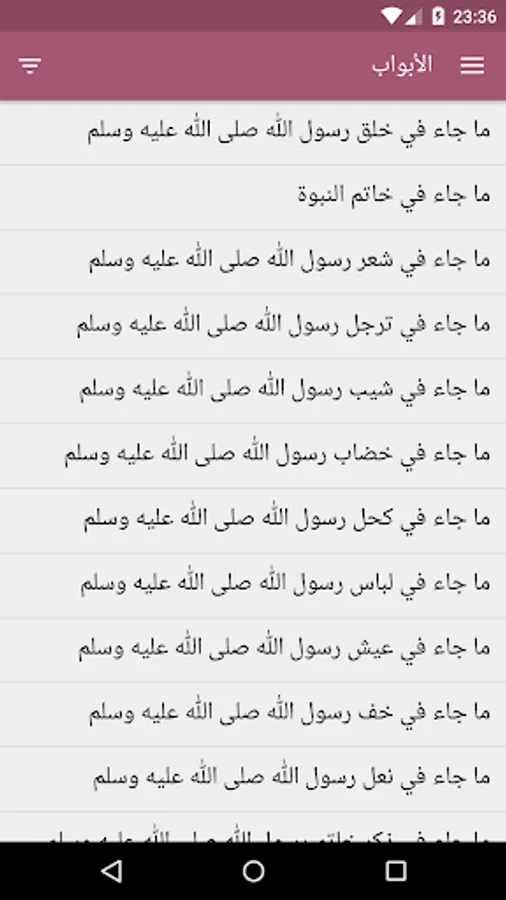 23:36
الأبواب
ما جاء في خلق رسول الله صلى الله عليه وسلم
ما جاء في خاتم النبوة
ما جاء في شعر رسول الله صلى الله عليه وسلم
ما جاء في ترجل رسول الله صلى الله عليه وسلم
ما جاء في شيب رسول الله صلى الله عليه وسلم
ما جاء في خضاب رسول الله صلى الله عليه وسلم
ما جاء في كحل رسول الله صلى الله عليه وسلم
ما جاء في لباس رسول الله صلى الله عليه وسلم
ما جاء في عيش رسول الله صلى الله عليه وسلم
ما جاء في خف رسول الله صلى الله عليه وسلم
ما جاء في نعل رسول الله صلى الله عليه وسلم
ما جاء في ذكر خاتم رسول الله صلى الله عليه وسلم